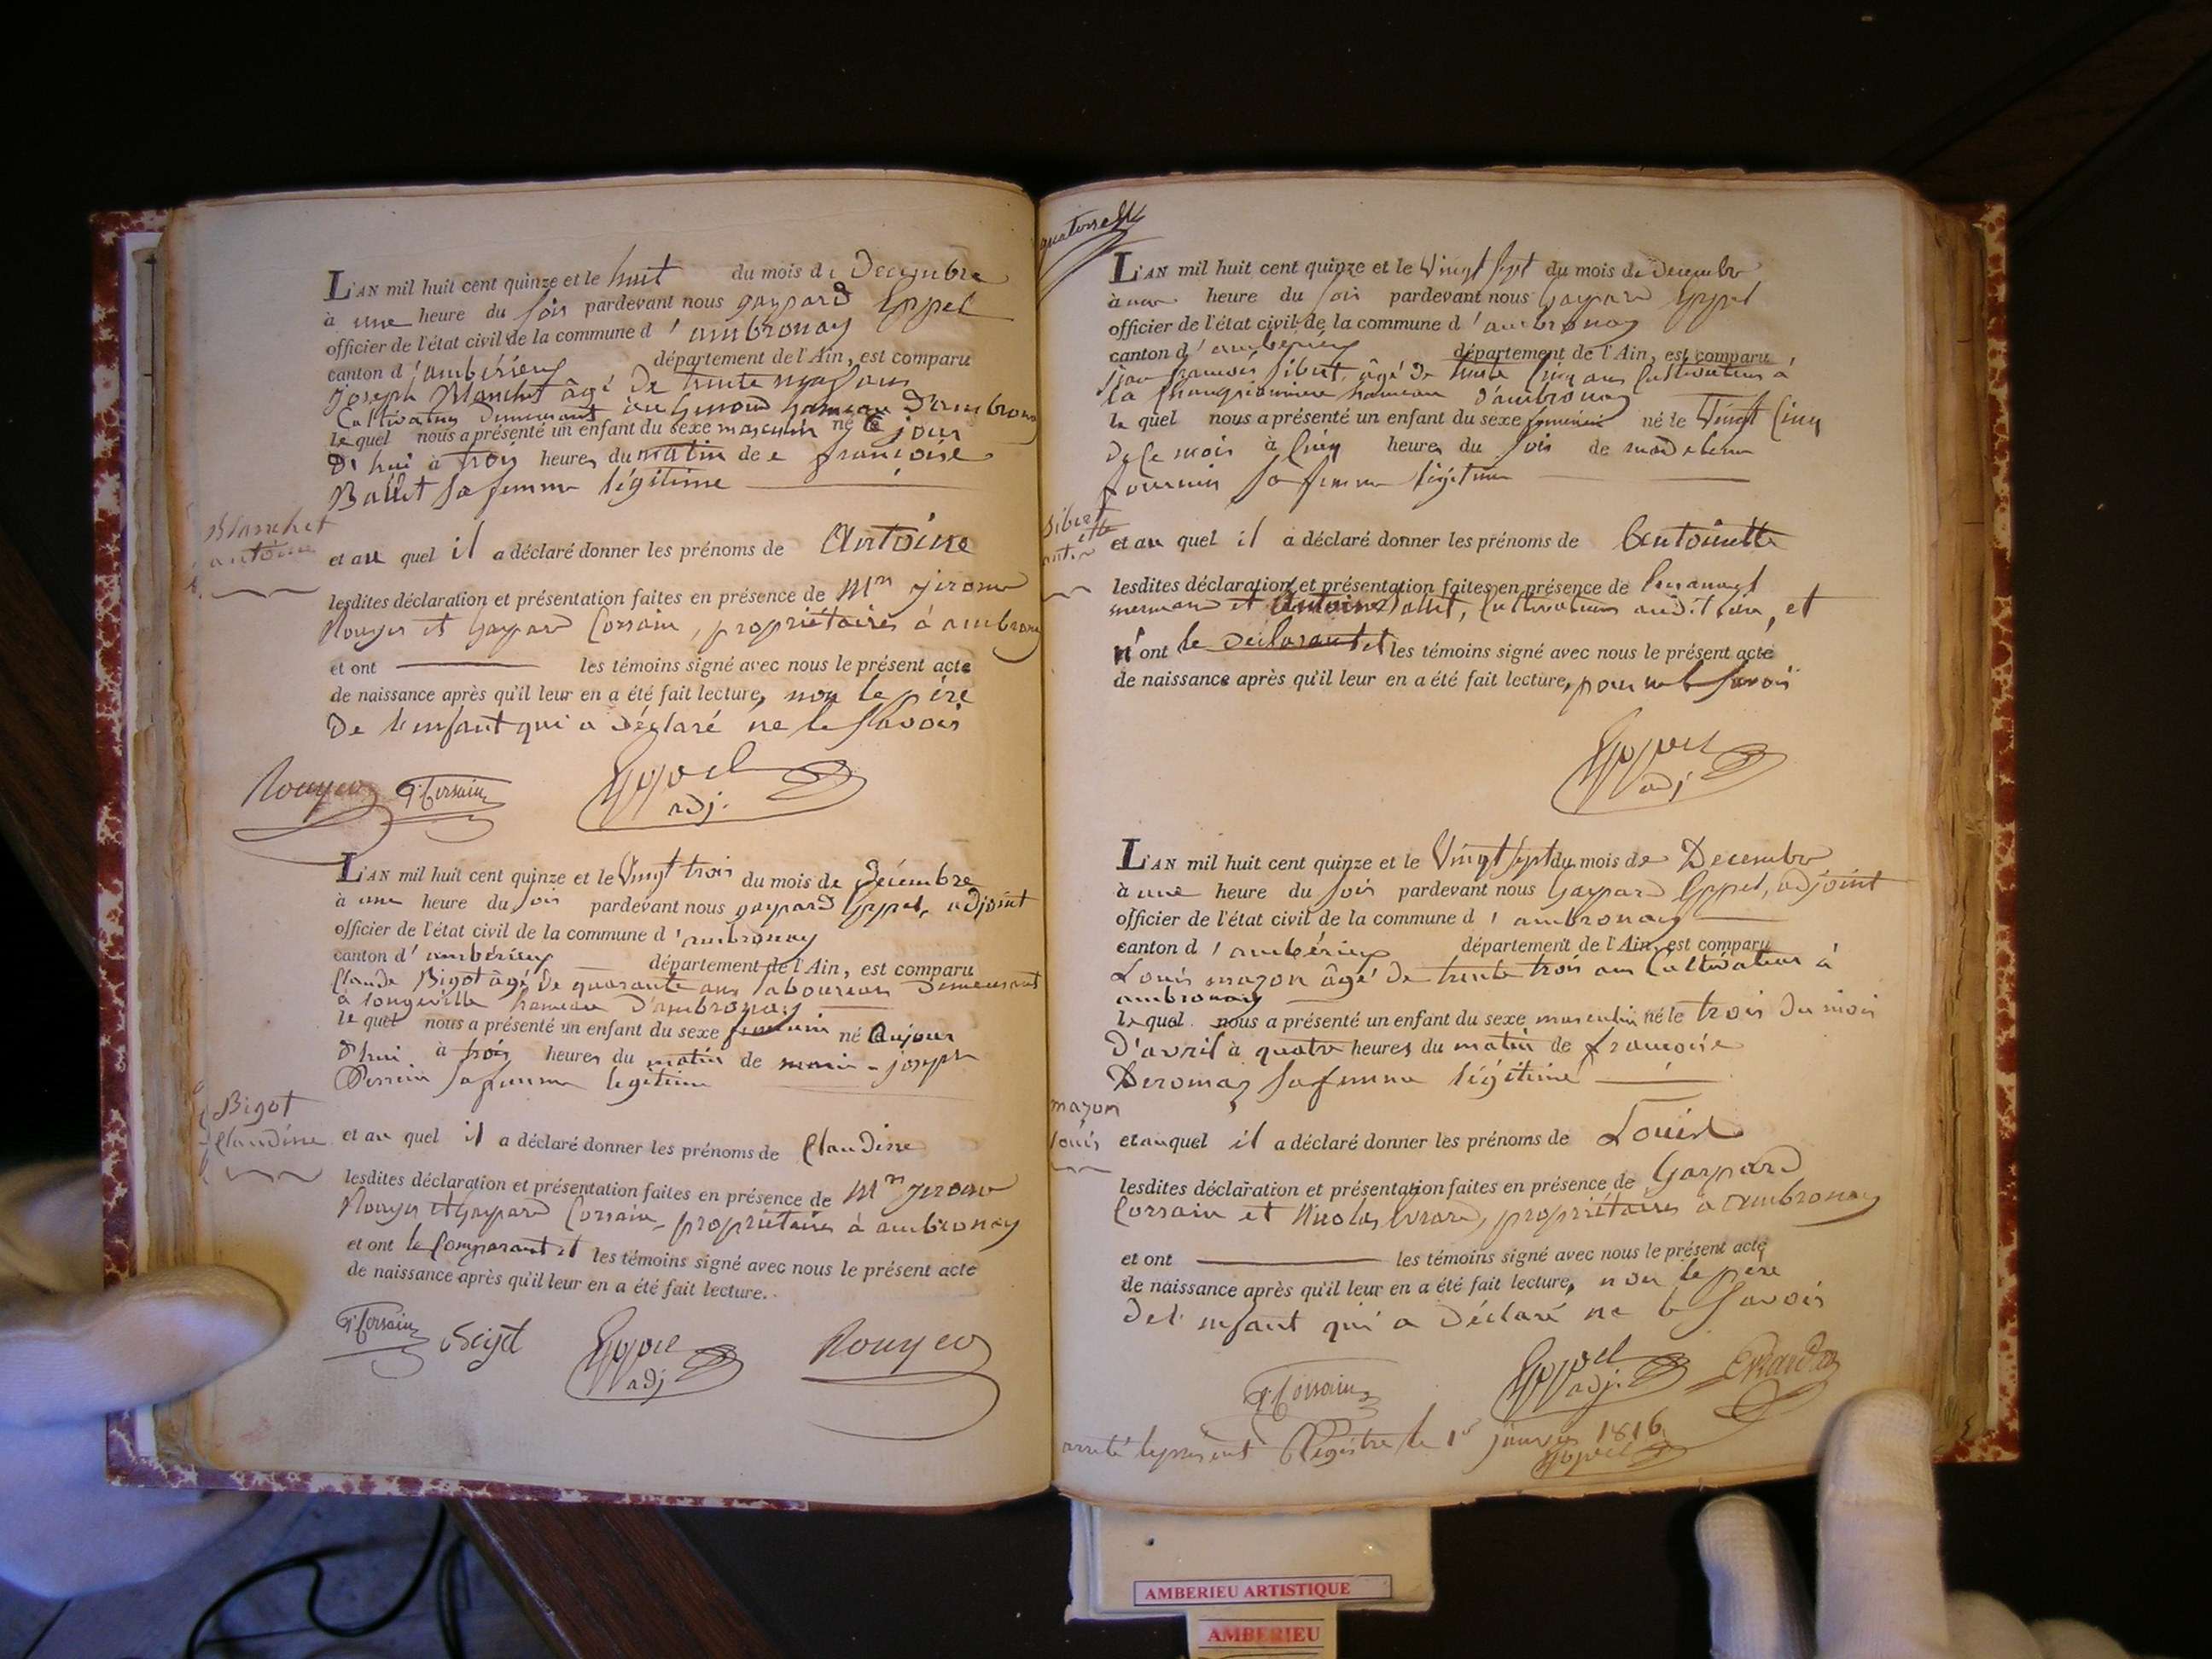 L'AN mil huit cent quinze et le huit du mois de Decembre
à une heure du soir pardevant nous gaspard Eppel
officier de l'état civil de la commune d'ambronay
canton d'ambérieux département de l'Ain, est comparu
joseph Blanchet âgé De trente neuf ans
Cultivateur Demeurant hameau D'ambronay
le quel nous a présenté un enfant du sexe masculin né le jour
D'hui à trois heures du matin de françoise
Ballet sa femme légitime
Blanchet
antoine
et au quel il a déclaré donner les prénoms de Antoine
lesdites déclaration et présentation faites en présence de Mr jerome
Rouyer et Gaspard Corsain, propriétaires à ambronay
et ont les témoins signé avec nous le présent acte
de naissance après qu'il leur en a été fait lecture, non le père
De l'enfant qui a Déclaré ne le savoir
Rouyer G. Corsain Eppel
adj.
L'AN mil huit cent quinze et le Vingt trois du mois de Décembre
à une heure du soir pardevant nous gaspard Eppel, adjoint
officier de l'état civil de la commune d'ambronay
canton d'ambérieux département de l'Ain, est comparu
Claude Bigot âgé De quarante ans laboureur Demeurant
à longeville hameau D'ambronay
le quel nous a présenté un enfant du sexe feminin né Aujour
d'hui à trois heures du matin de marie-joseph
Perrin sa femme legitime
Bigot
Claudine
et au quel il a déclaré donner les prénoms de Claudine
lesdites déclaration et présentation faites en présence de Mr jerome
Rouyer et Gaspard Corsain, propriétaires à ambronay
et ont le Comparant et les témoins signé avec nous le présent acte
de naissance après qu'il leur en a été fait lecture.
G. Corsain Eppel Rouyer
adj
L'AN mil huit cent quinze et le Vingt sept du mois de Decembre
à une heure du soir pardevant nous Gaspard Eppel
officier de l'état civil de la commune d'ambronay
canton d'ambérieux département de l'Ain, est comparu
jean françois sibert, âgé De trente Cinq ans Cultivateur à
la hameau d'ambronay
le quel nous a présenté un enfant du sexe feminin né le Vingt Cinq
De Ce mois à Cinq heures du soir de madelene
fournier sa femme légitime
sibert
antoinette
et au quel il a déclaré donner les prénoms de Antoinette
lesdites déclaration et présentation faites en présence de Emanuel
mermand et Antoine Ballet, Cultivateurs audit lieu, et
n'ont le Déclarant et les témoins signé avec nous le présent acte
de naissance après qu'il leur en a été fait lecture, pour ne le savoir
Eppel
adj
L'AN mil huit cent quinze et le Vingt sept du mois de Decembre
à une heure du soir pardevant nous Gaspard Eppel, adjoint
officier de l'état civil de la commune d'ambronay
canton d'ambérieux département de l'Ain, est comparu
Louis mazon âgé De trente trois ans Cultivateur à
ambronay
le quel nous a présenté un enfant du sexe masculin né le trois Du mois
D'avril à quatre heures du matin de françoise
Deromas sa femme légitime
mazon
louis
et au quel il a déclaré donner les prénoms de Louis
lesdites déclaration et présentation faites en présence de Gaspard
Corsain et Nicolas Evrard, propriétaires à ambronay
et ont les témoins signé avec nous le présent acte
de naissance après qu'il leur en a été fait lecture, non le père
De l'enfant qui a Déclaré ne le savoir
G. Corsain Eppel Evrard
adj.
arreté le present Régistre le 1er janvier 1816
Eppel
AMBERIEU ARTISTIQUE
AMBERIEU